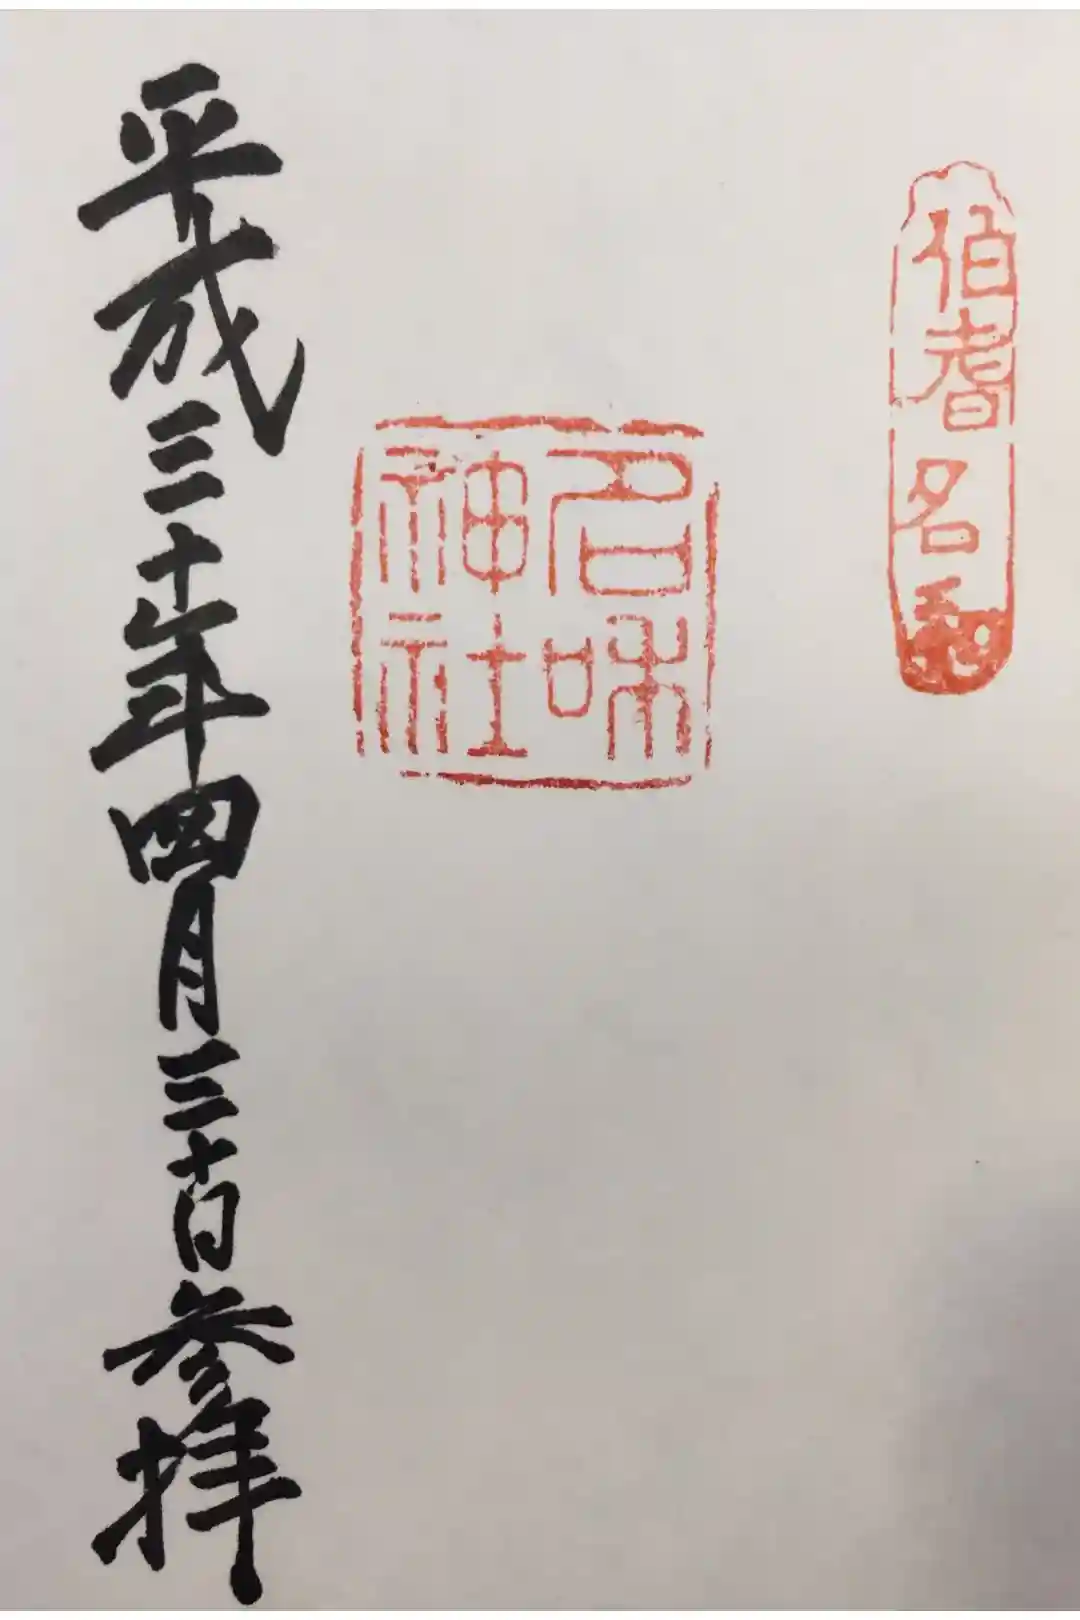 伯耆名和
名和
神社
平成三十年四月三十日参拝